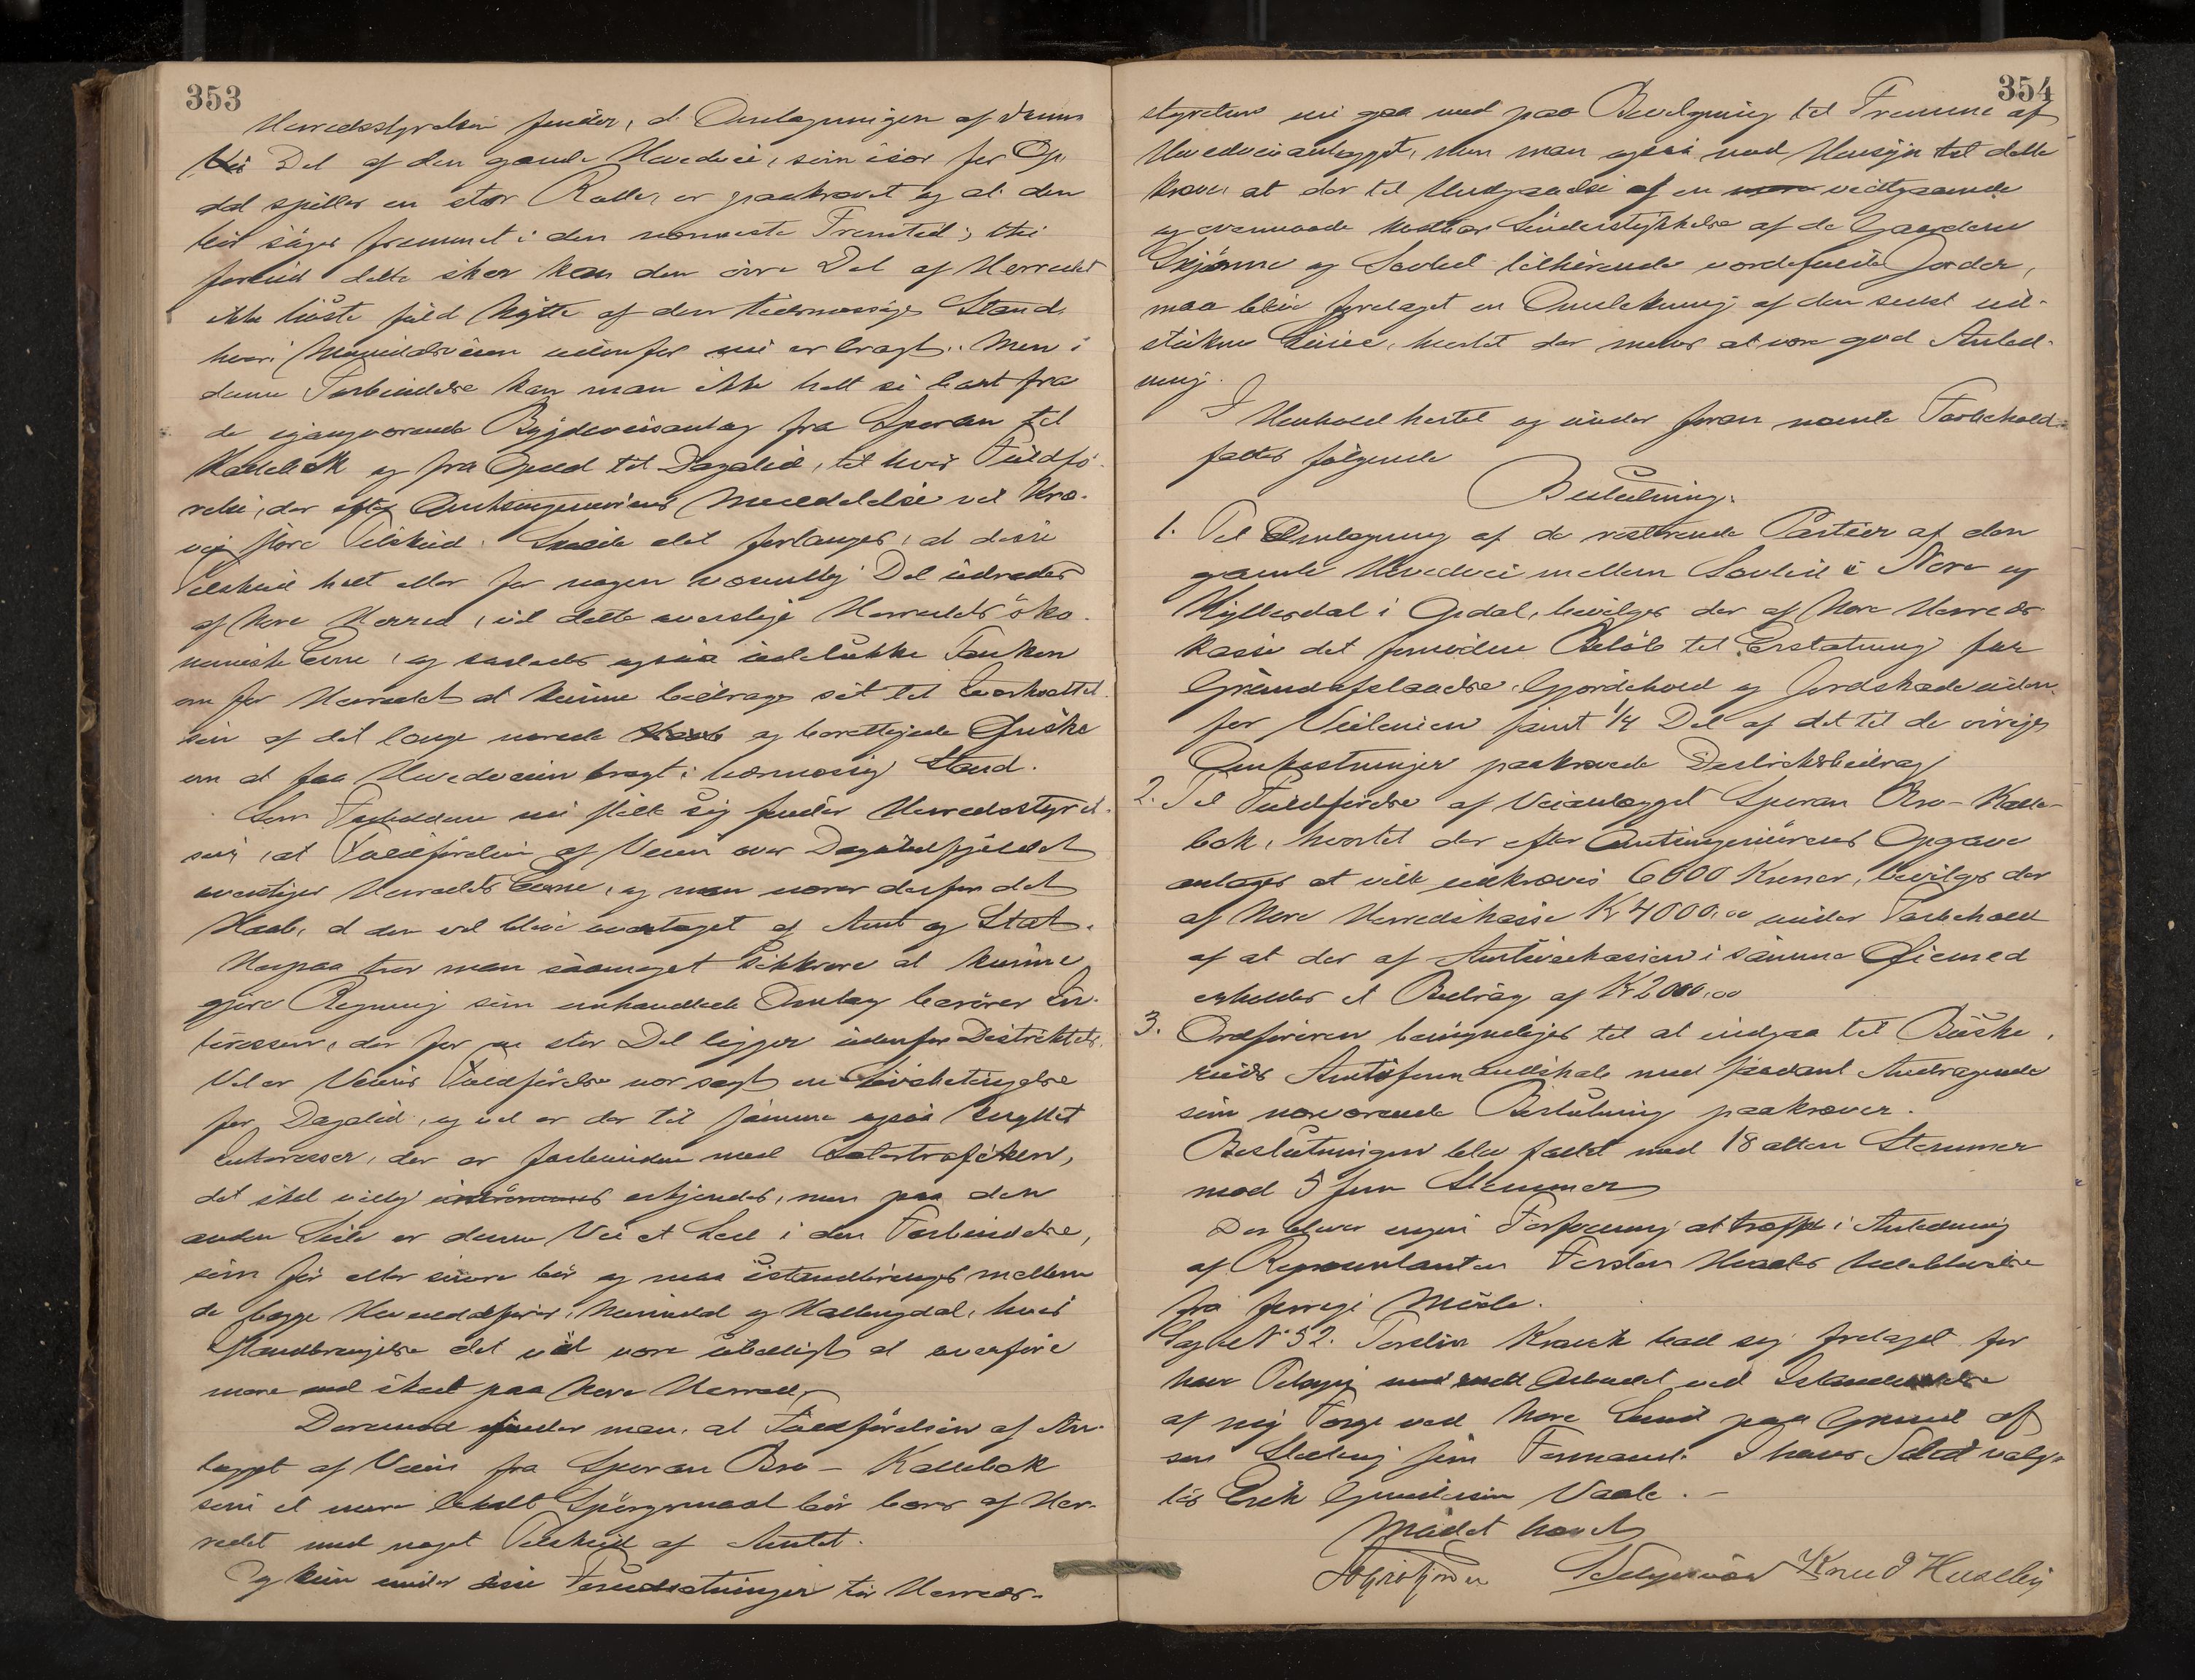 353
Herredsstyrelsen finder, at Omlægningen af denne
Del af den gamle Hovedvei, som især for Op-
dal spiller en stor Rolle, er paakrævet og at den
bør søges fremmet i den nærmeste Fremtid; thi
forend dette sker kan den øvre Del af Herredet
ikke høste fuld Nytte af den tidsmæssige Stand,
hvori Numedalsveien udenfor nu er bragt. Men i
denne Forbindelse kan man ikke helt se bort fra
de igangværende Bygdeveisanlæg fra Sporan til
Kallebæk og fra Opdal til Dagalid, til hvis Fuldfø-
relse, der efter Amtsingeniørens Meddelelse vil kræ-
ves store Tilskud. Skulde det forlanges, at disse
Tilskud helt eller for nogen væsentlig Del udredes
af Nore Herred, vil dette overstige Herredets øko-
nomiske Evne, og saaledes ogsaa udelukke Tanken
om for Herredet at kunne bidrage sit til Iværksættel-
sen af det længe nærede og berettigede Ønske
om at faa Hovedveien bragt i tidsmæssig Stand.
Som Forholdene nu stille sig finder Herredsstyrel-
sen, at Fuldførelsen af Veien over Dagalifjeldet
overstiger Herredets Evne, og man nærer derfor det
Haab, at den vil blive overtaget af Amt og Stat.
Herpaa tror man saameget sikkrere at kunne
gjøre Regning som omhandlede Anlæg berører In-
teresser, der for en stor Del ligger udenfor Distriktet.
Vel er Veiens Fuldførelse nær sagt en Livsbetingelse
for Dagalid, og vel er der til samme ogsaa knyttet
Interesser, der er forbunden med Sætertrafikken,
det skal villig indrømmes erkjendes, men paa den
anden Side er denne Vei et Led i den Forbindelse,
som før eller senere bør og maa istandbringes mellem
de begge Hoveddalfører, Numedal og Hallingdal, hvis
Istandbringelse det vil være ubilligt at overføre
mere end skeet paa Nore Herred.
Derimod finder man, at Fuldførelsen af An-
lægget af Veien fra Sporan Bro – Kallebæk
som et mere lokalt Spørgsmaal bør bæres af Her-
redet med noget Tilskud af Amtet.
Og kun under disse Forudsætninger tør Herreds-
354
styrelsen nu gaa med paa Bevilgning til Fremme af
Hovedveianlægget, men man ogsaa med Hensyn til dette
kræve, at der til Undgaaelse af en mere vidtgaaende
og overmaade kostbar Sønderstykkelse af de Gaardene
Skjønne og Savlid tilhørende værdifulde Jorder,
maa blive foretaget en Omstikning af den sidst ud-
stukne Linie, hvortil der menes at være god Anled-
ning.
I Henhold hertil og under foran nævnte Forbehold
fattes følgende
Beslutning.
1. Til Omlægning af de resterende Partier af den
gamle Hovedvei mellem Savlid i Nore og
Kyllesdal i Opdal, bevilges der af Nore Herreds-
kasse det fornødne Beløb til Erstatning for
Grundafstaaelse, Gjerdehold og Jordskade uden-
for Veilinien samt 1/4 Del af det til de øvrige
Omkostninger paakrævede Distriktsbidrag
2. Til Fuldførelse af Veianlægget Sporan Bro – Kalle-
bæk, hvortil der efter Amtsingeniørens Opgave
antages at ville udkræves 6000 Kroner, bevilges der
af Nore Herredskasse Kr 4000,00 under Forbehold
af at der af Amtsveikassen i samme Øiemed
erholdes et Bidrag af Kr 2000,00
3. Ordføreren bemyndiges til at indgaa til Buske-
ruds Amtsformandskab med saadant Andragende
som nærværende Beslutning paakræver.
Beslutningen blev fattet med 18 atten Stemmer
mod 5 fem Stemmer
Der blever ingen Forføining at træffe i Anledning
af Repræsentanten Torsten Udeblivelse
fra forrige Møde.
Sag No 52. Torstein bad sig fritaget for
hans med Arbeidet ved
af ny Færge ved Nore Sund paa Grund af
sin Stilling som Formand. I hans Sted valg-
tes Erik Gundersen Vaale. –
Mødet hævet
Knud Huseby